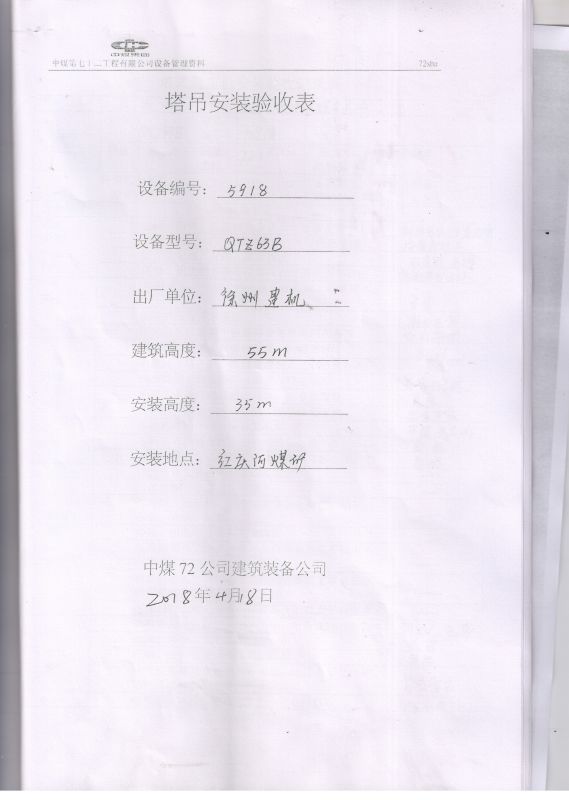 中煤集团
中煤第七十二工程有限公司设备管理资料 72sbu
塔吊安装验收表
设备编号：5918
设备型号：QTZ63B
出厂单位：徐州建机
建筑高度：55m
安装高度：35m
安装地点：红庆河煤矿
中煤 72 公司建筑装备公司
2018年4月18日